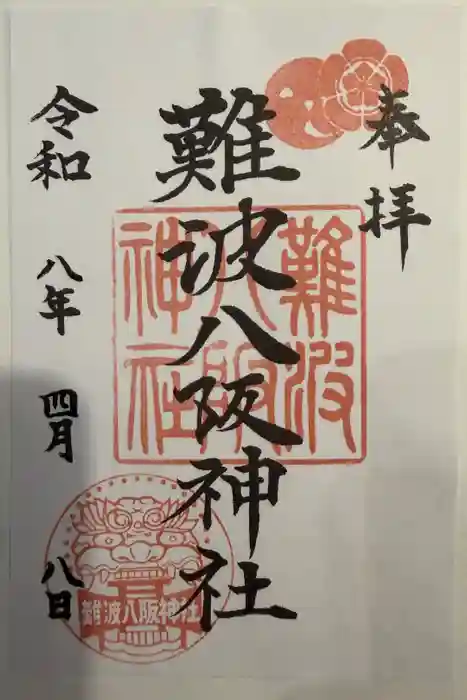 奉拝
難波八阪神社
難波
八阪
神社
令和 八年 四月 八日
難波八阪神社